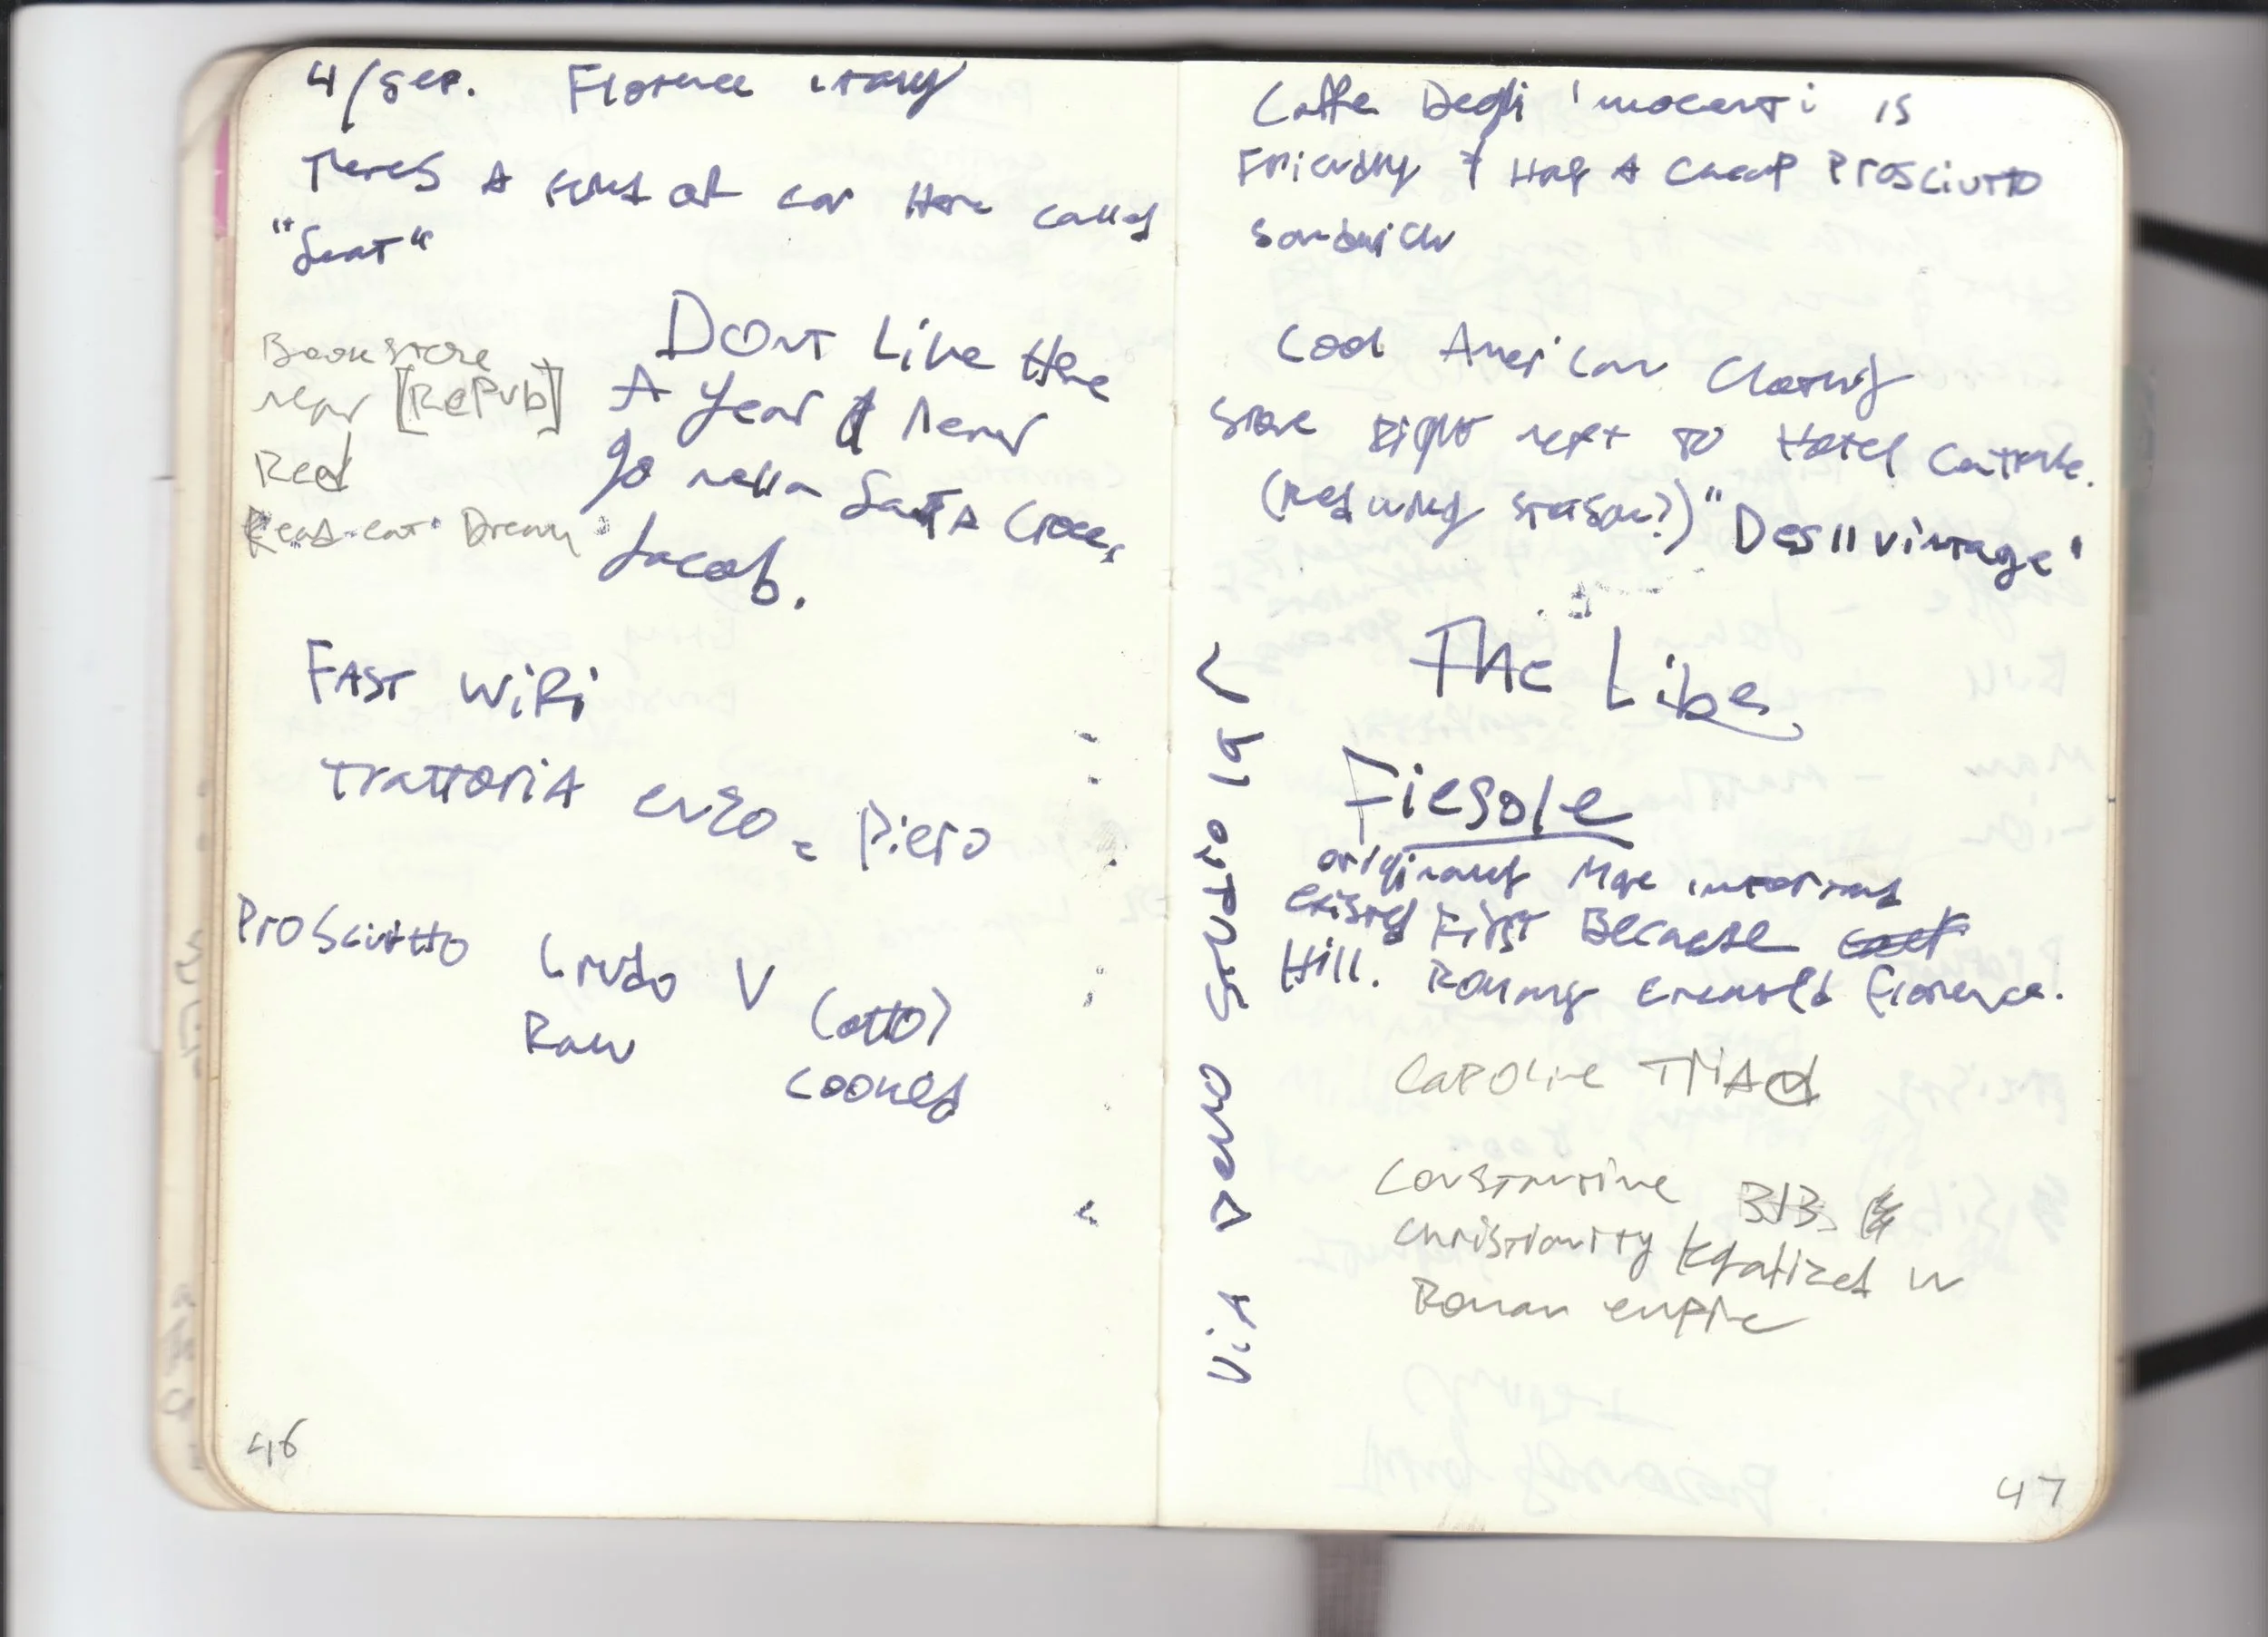 4/Sep. Florence Italy
Theres A kind of car Here called
"Seat"
Bookstore
near [RePub]
Red
Read-eat Dream
DOnt Live Here
A year & Never
go nella SanTA Croce,
Jacob.
FAST WiFi
TrattoriA enzo e Piero
ProSciutto Crudo V Cotto
Raw cooked
46
Caffe Degli innocenti is
Friendly & Has A CheaP Prosciutto
Sandwich
Cool American Clothing
store Right next to Hotel Centrale.
(Red wing station?) "Desii vintage"
The Libe
Fiesole
originally More important
existed First Because
Hill. Romans created florence.
Caroline TriAd
Constantine 313
Christianity legalized in
Roman empire
ViA Dello Studio 19r
47